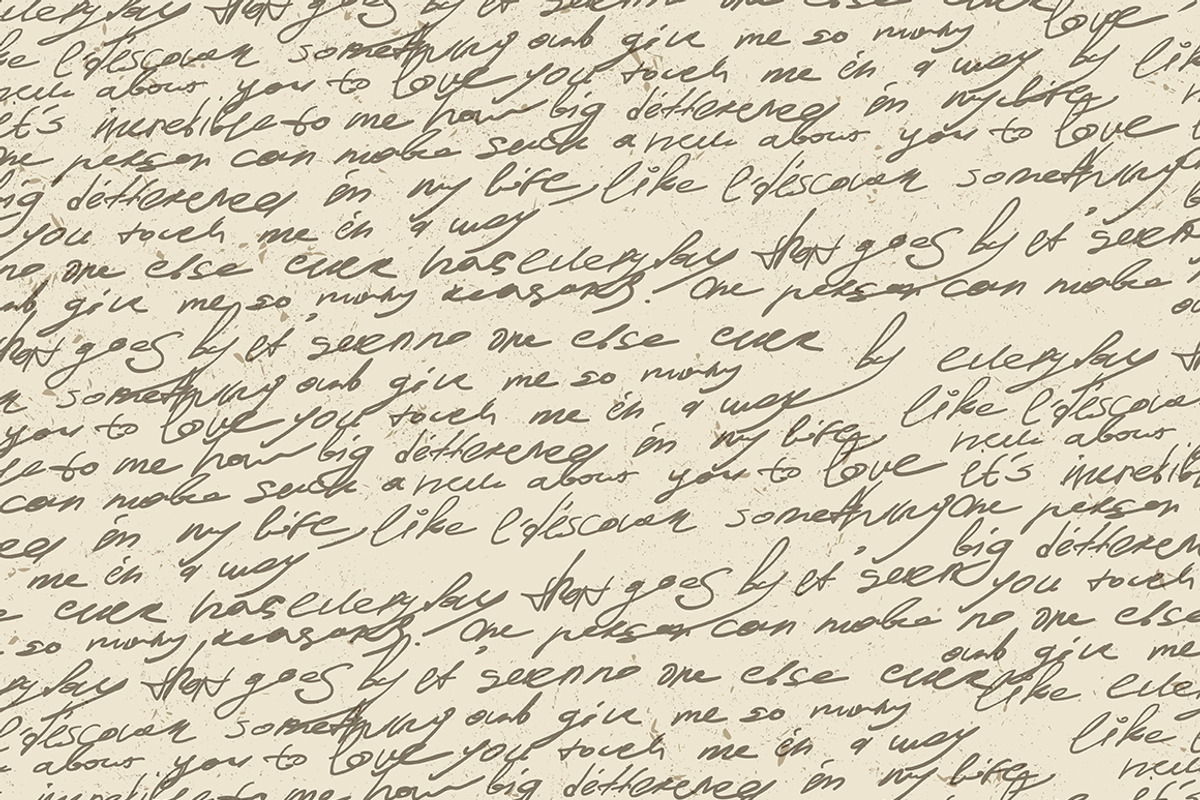 everyday that goes by it seems no one else ever
like I discover something and give me so many love
new about you to love you touch me in a way by like
it's incredible to me how big difference in my life
one person can make such a new about you to love
big difference in my life, like I discover something
you touch me in a way
no one else ever has everyday that goes by it seem
and give me so many reasons. One person can make
that goes by it seem no one else ever by everyday
something and give me so many like I discover
you to love you touch me in a way new about
to me how big difference in my life it's incredible
can make such a new about you to love One person
in my life, like I discover something big difference
me in a way you touch
ever has everyday that goes by it seem
so many reasons. One person can make no one else
everyday that goes by it seem no one else ever and give me
I discover something and give me so many like
about you to love you touch me in a way like
incredible to me how big difference in my life new